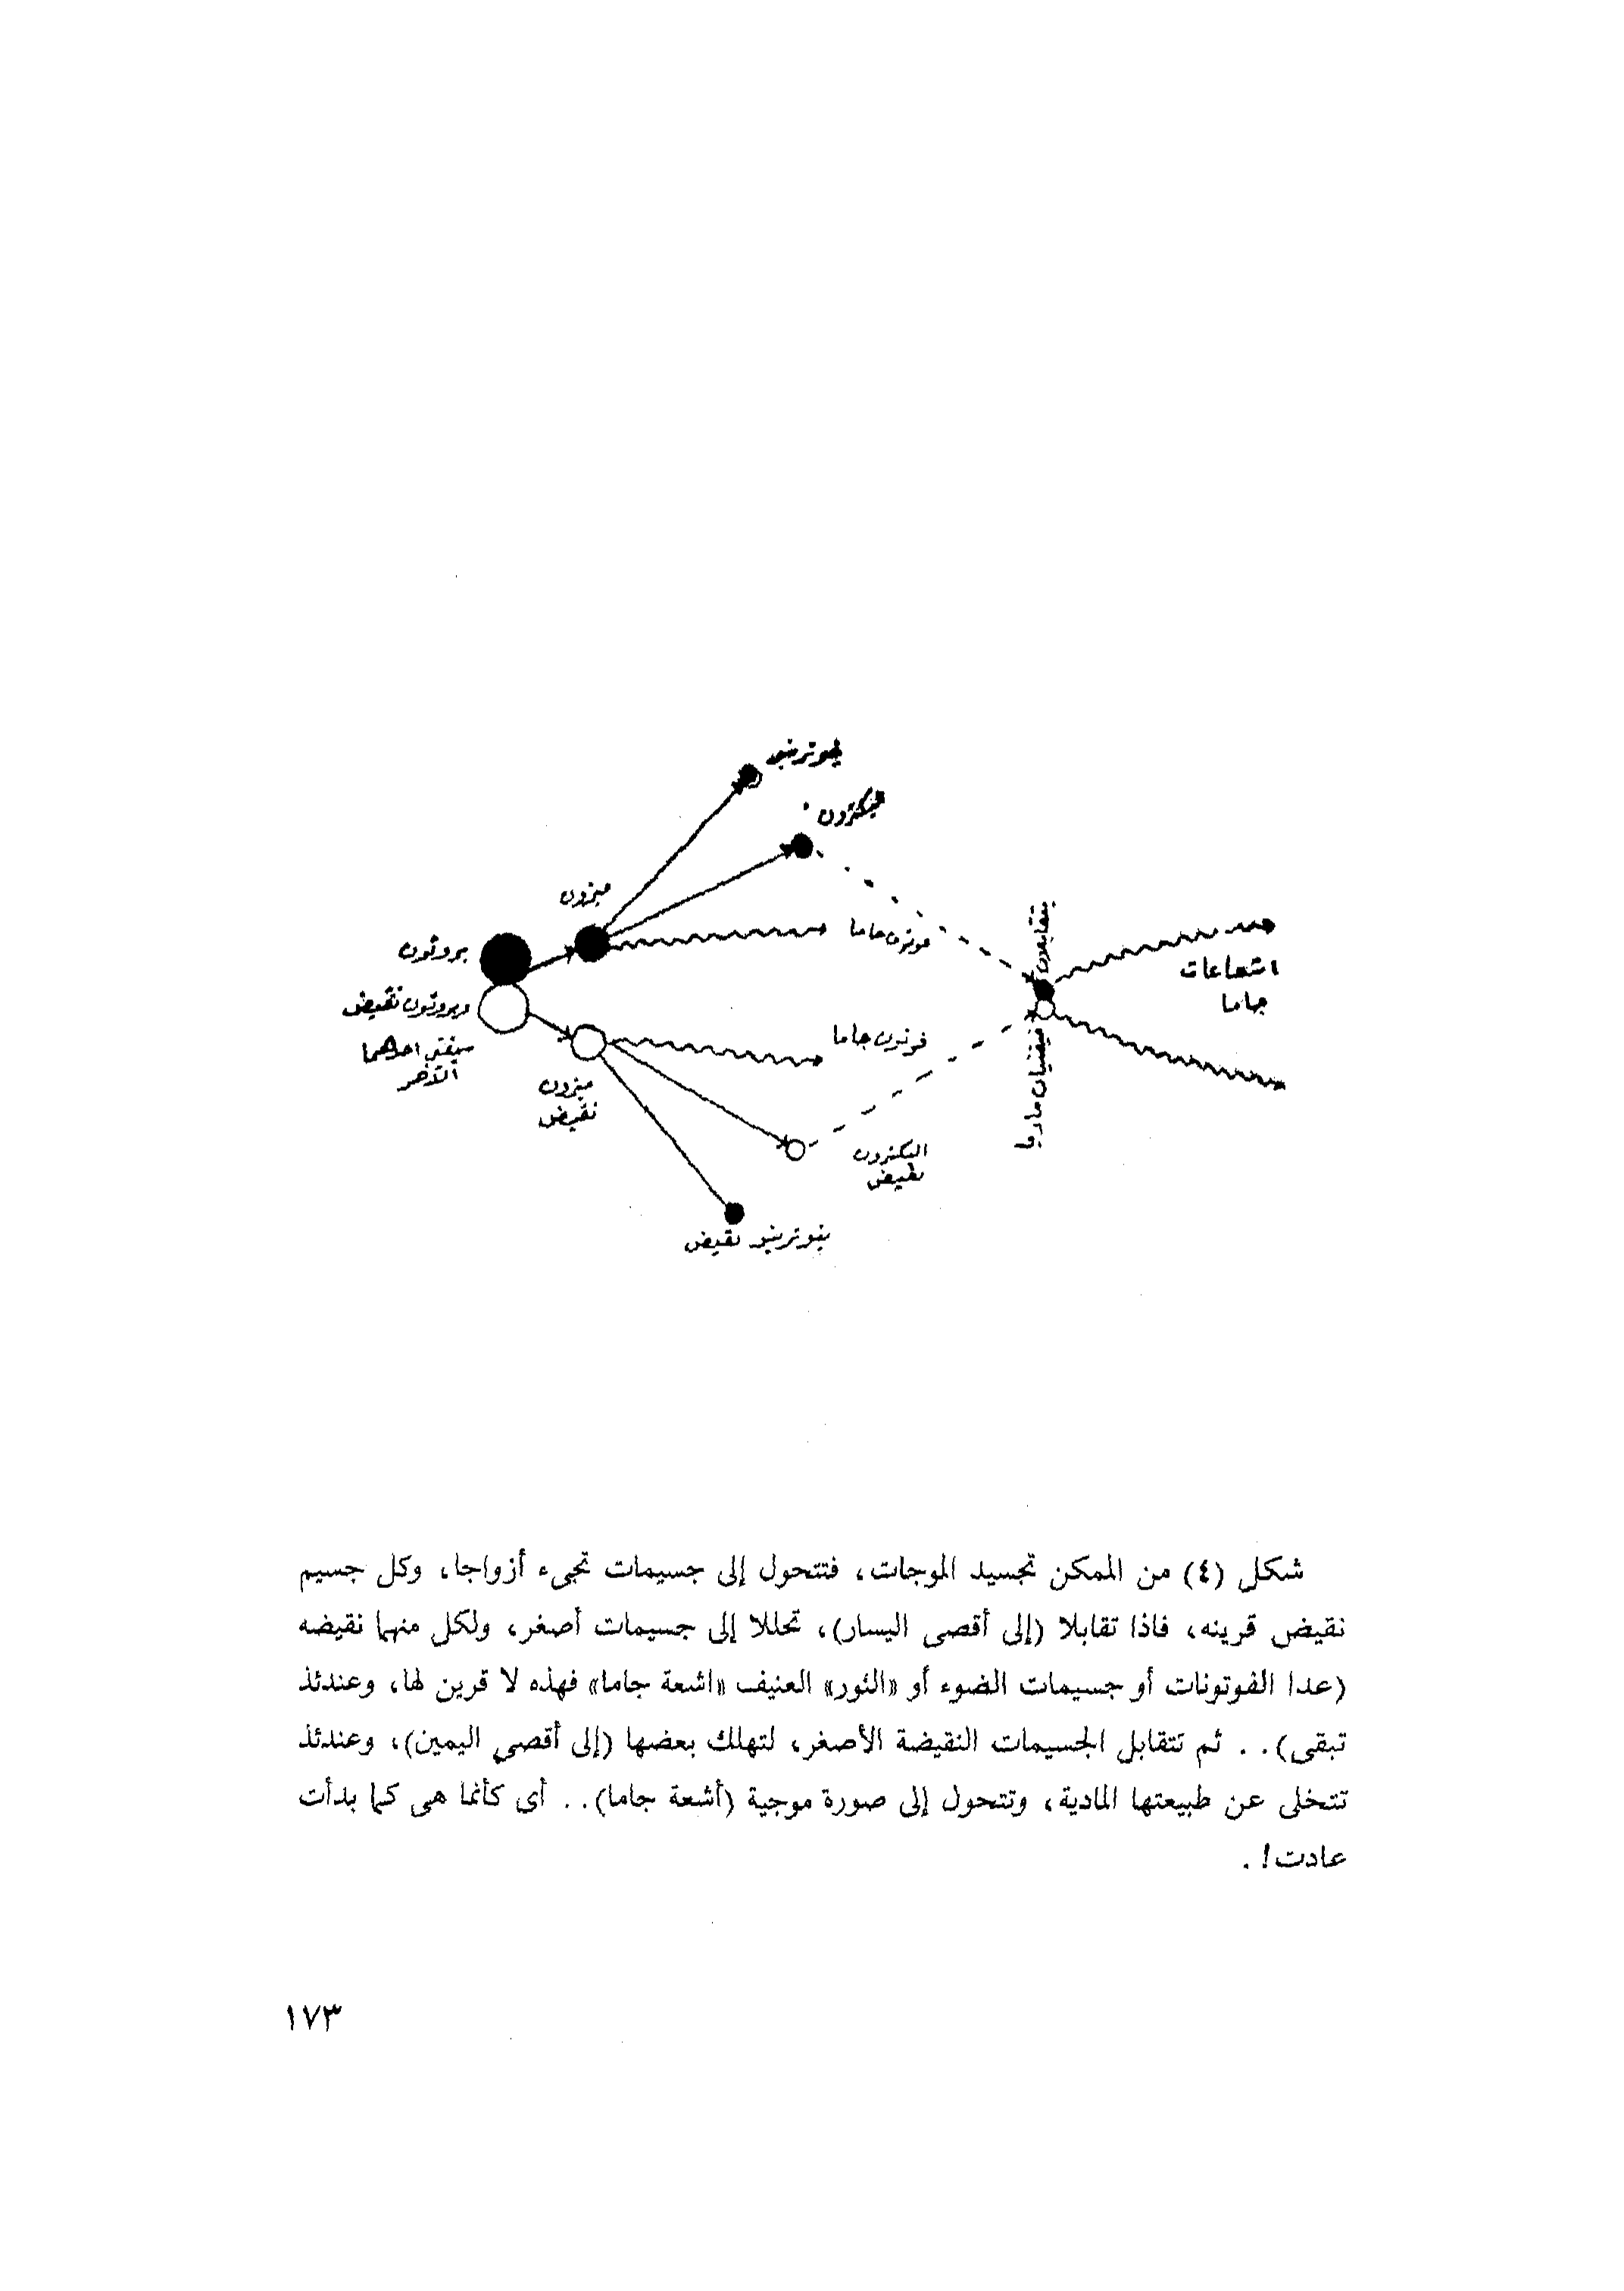 نيوترينو
اليكترون
ميزون
فوتون جاما
بروتون
وبروتون نقيض
احدهما
الآخر
يتقابلان
فيفنيان ماديا
اشعاعات
جاما
فوتون جاما
ميزون
نقيض
اليكترون
نقيض
نيوترينو نقيض
شكل (٤) من الممكن تجسيد الموجات، فتتحول إلى جسيمات تجىء أزواجا، وكل جسيم
نقيض قرينه، فاذا تقابلا (إلى أقصى اليسار)، تحللا إلى جسيمات أصغر، ولكل منهما نقيضه
(عدا الفوتونات أو جسيمات الضوء أو «النور» العنيف «اشعة جاما» فهذه لا قرين لها، وعندئذ
تبقى).. ثم تتقابل الجسيمات النقيضة الأصغر، لتهلك بعضها (إلى أقصى اليمين)، وعندئذ
تتخلى عن طبيعتها المادية، وتتحول إلى صورة موجية (أشعة جاما).. أى كأنما هى كما بدأت
عادت!.
١٧٣